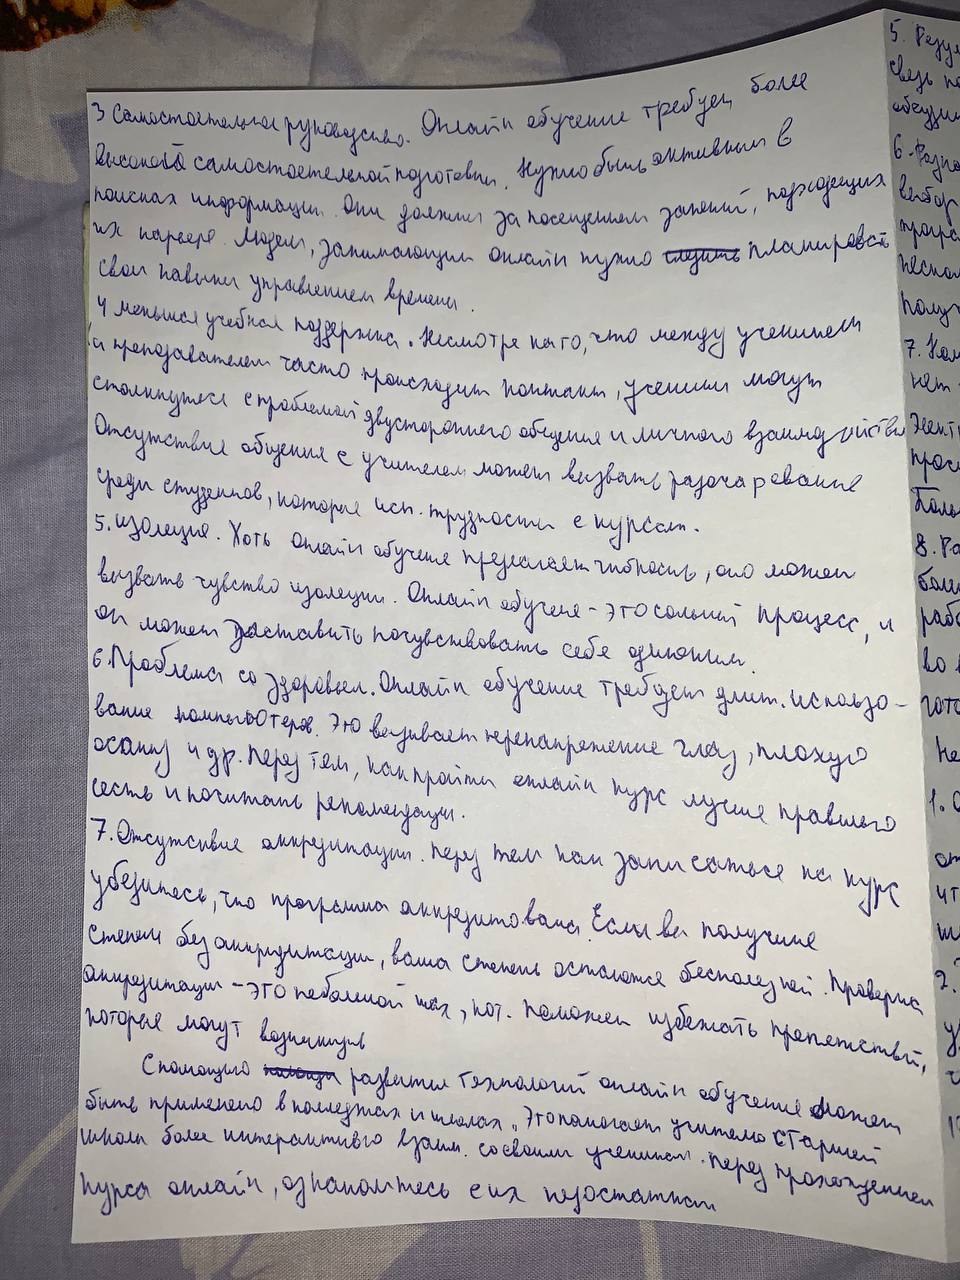 3 Самостоятельное руководство. Онлайн обучение требует более
высокой самостоятельной подготовки. Нужно быть активным в
поисках информации. Они должны за посещением занятий, подходящих
их карьере. Людям, занимающимся онлайн нужно следить планировать
свои навыки управлением времени.
4 меньшая учебная поддержка. Несмотря на то, что между учениками
и преподавателем часто происходит контакт, ученики могут
столкнуться с проблемой двустороннего общения и личного взаимодействия
Отсутствие общения с учителем может вызвать разочарование
среди студентов, которые исп. трудности с курсом.
5. изоляция. Хоть онлайн обучение предлагает гибкость, оно может
вызвать чувство изоляции. Онлайн обучение - это сольный процесс, и
он может заставить почувствовать себя одиноким.
6. Проблема со здоровьем. Онлайн обучение требует длит. использо-
вание компьютера. Это вызывает перенапряжение глаз, плохую
осанку и др. Перед тем, как пройти онлайн курс лучше правильно
сесть и почитать рекомендации.
7. Отсутствие аккредитации. Перед тем как записаться на курс
убедитесь, что программа аккредитована. Если вы получите
степень без аккредитации, ваша степень останется бесполезной. Проверка
аккредитации - это небольшой шаг, кот. поможет избежать препятствий,
которые могут возникнуть
С помощью развития технологий онлайн обучение может
быть применено в колледжах и школах. Это помогает учителю старшей
школы более интерактивно взаим. со своими учениками. Перед прохождением
курса онлайн, ознакомьтесь с их недостатками
5. Резул
связь по
обсужд
6.
выбор
програ
неско
полу
7. Ком
нет

прос
Боль
8. Ра
боль
рабо
во в
гото
Не
1. О
от
чт
2.
у